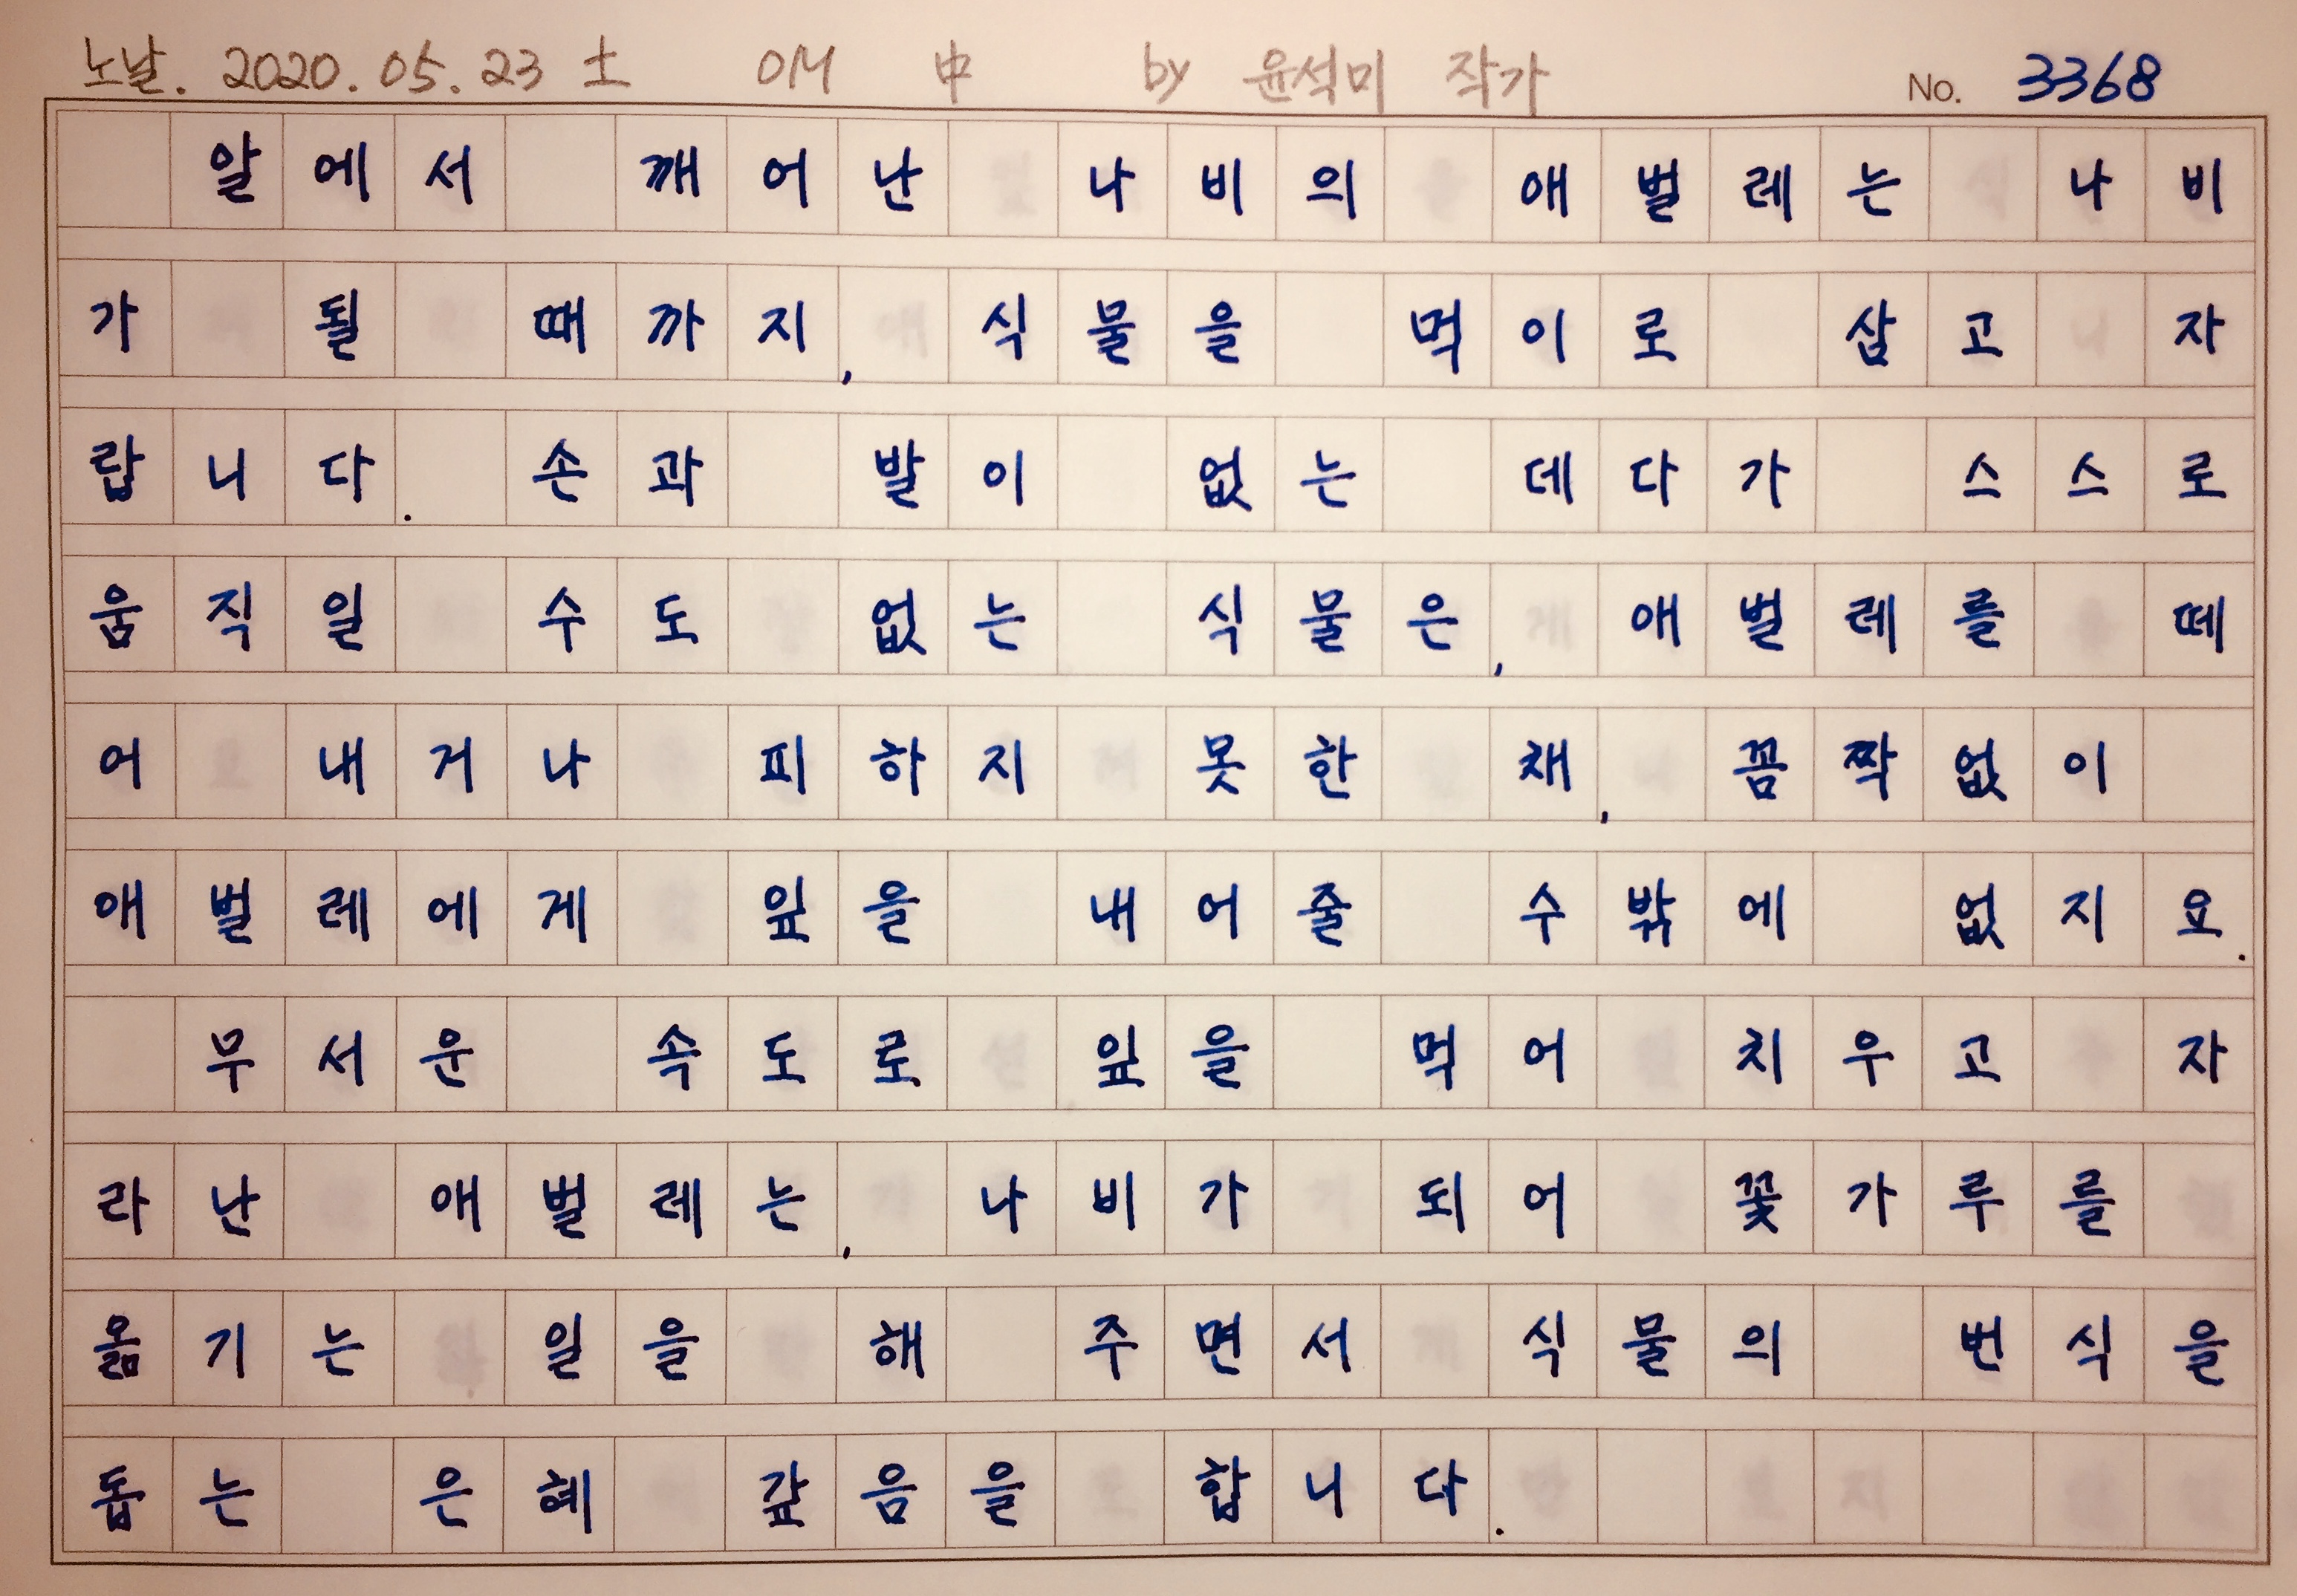 노날. 2020.05.23 土 OM 中 by 윤석미 작가 No. 3368
알에서 깨어난 나비의 애벌레는 나비
가 될 때까지, 식물을 먹이로 삼고 자
랍니다. 손과 발이 없는 데다가 스스로
움직일 수도 없는 식물은, 애벌레를 떼
어 내거나 피하지 못한 채, 꼼짝없이
애벌레에게 잎을 내어줄 수밖에 없지요.
무서운 속도로 잎을 먹어 치우고 자
라난 애벌레는, 나비가 되어 꽃가루를
옮기는 일을 해 주면서 식물의 번식을
돕는 은혜 갚음을 합니다.